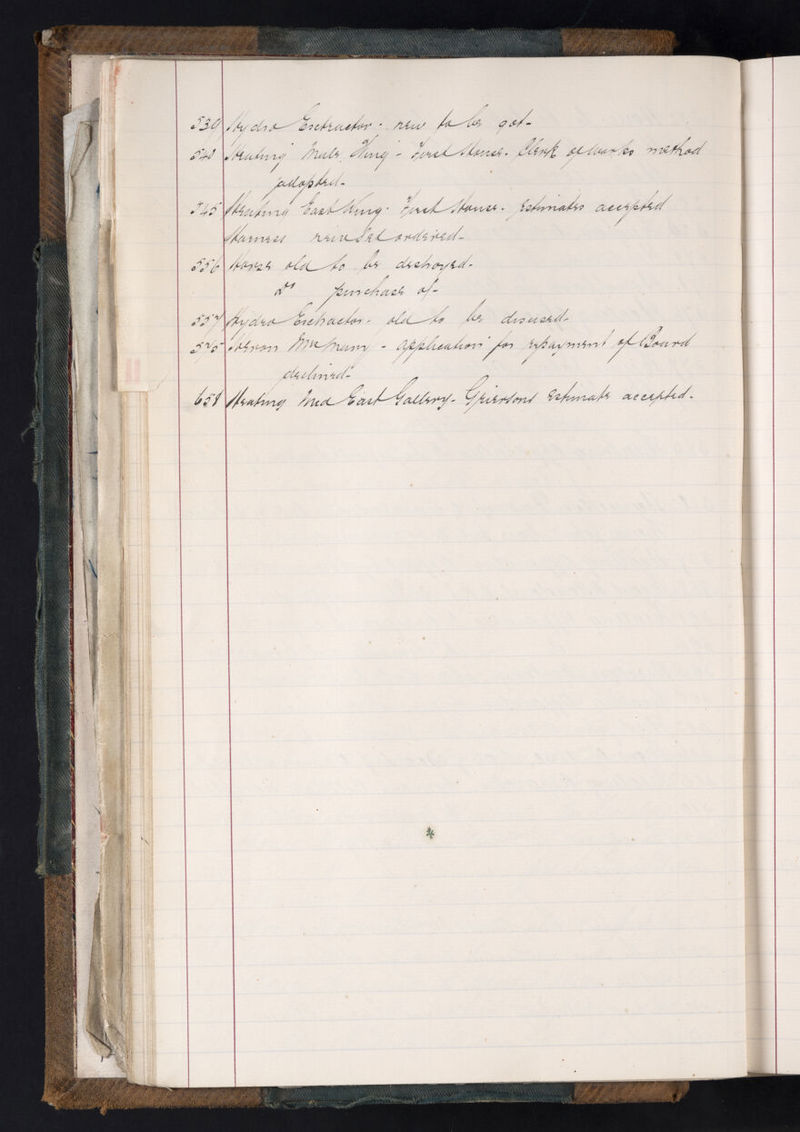 539 Hydro Extractor - new to be got -
540 Heating Male Wing - First House - Clerk of Works method
adopted -
545 Heating East Wing - First House - Estimates accepted
Harness new Set ordered -
556 Horse old to be destroyed -
Do purchase of -
557 Hydro Extractor - old to be disused -
575 Heron Mrs Mary - application for repayment of Board
declined -
658 Heating Mid East Gallery - Griersons Estimate accepted -
11